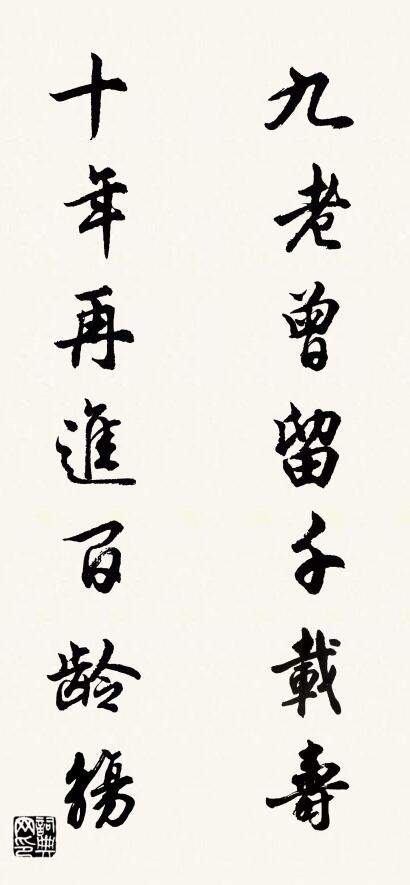 九老曾留千載壽
十年再進百龄觴
詞典网印